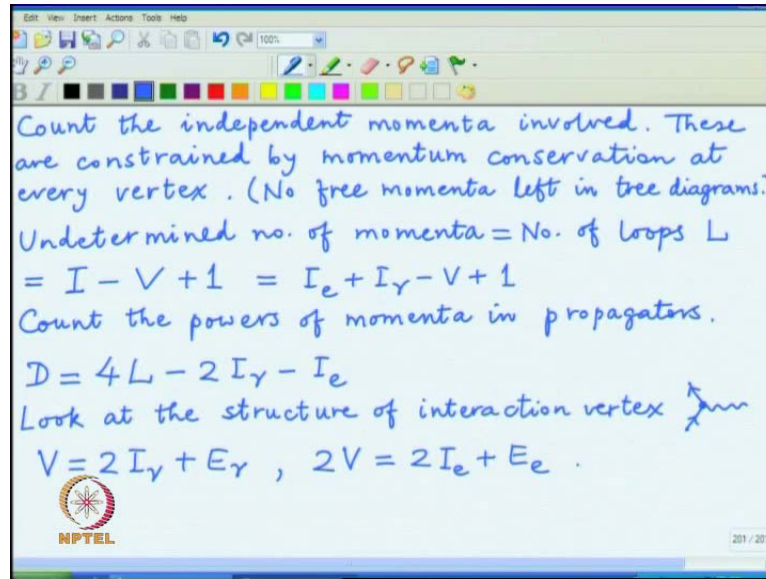 Edit View Insert Actions Tools Help
100%
B I
Count the independent momenta involved. These
are constrained by momentum conservation at
every vertex. (No free momenta left in tree diagrams.
Undetermined no. of momenta = No. of loops L
= I - V + 1 = I_e + I_γ - V + 1
Count the powers of momenta in propagators.
D = 4L - 2I_γ - I_e
Look at the structure of interaction vertex
V = 2I_γ + E_γ , 2V = 2I_e + E_e .
NPTEL